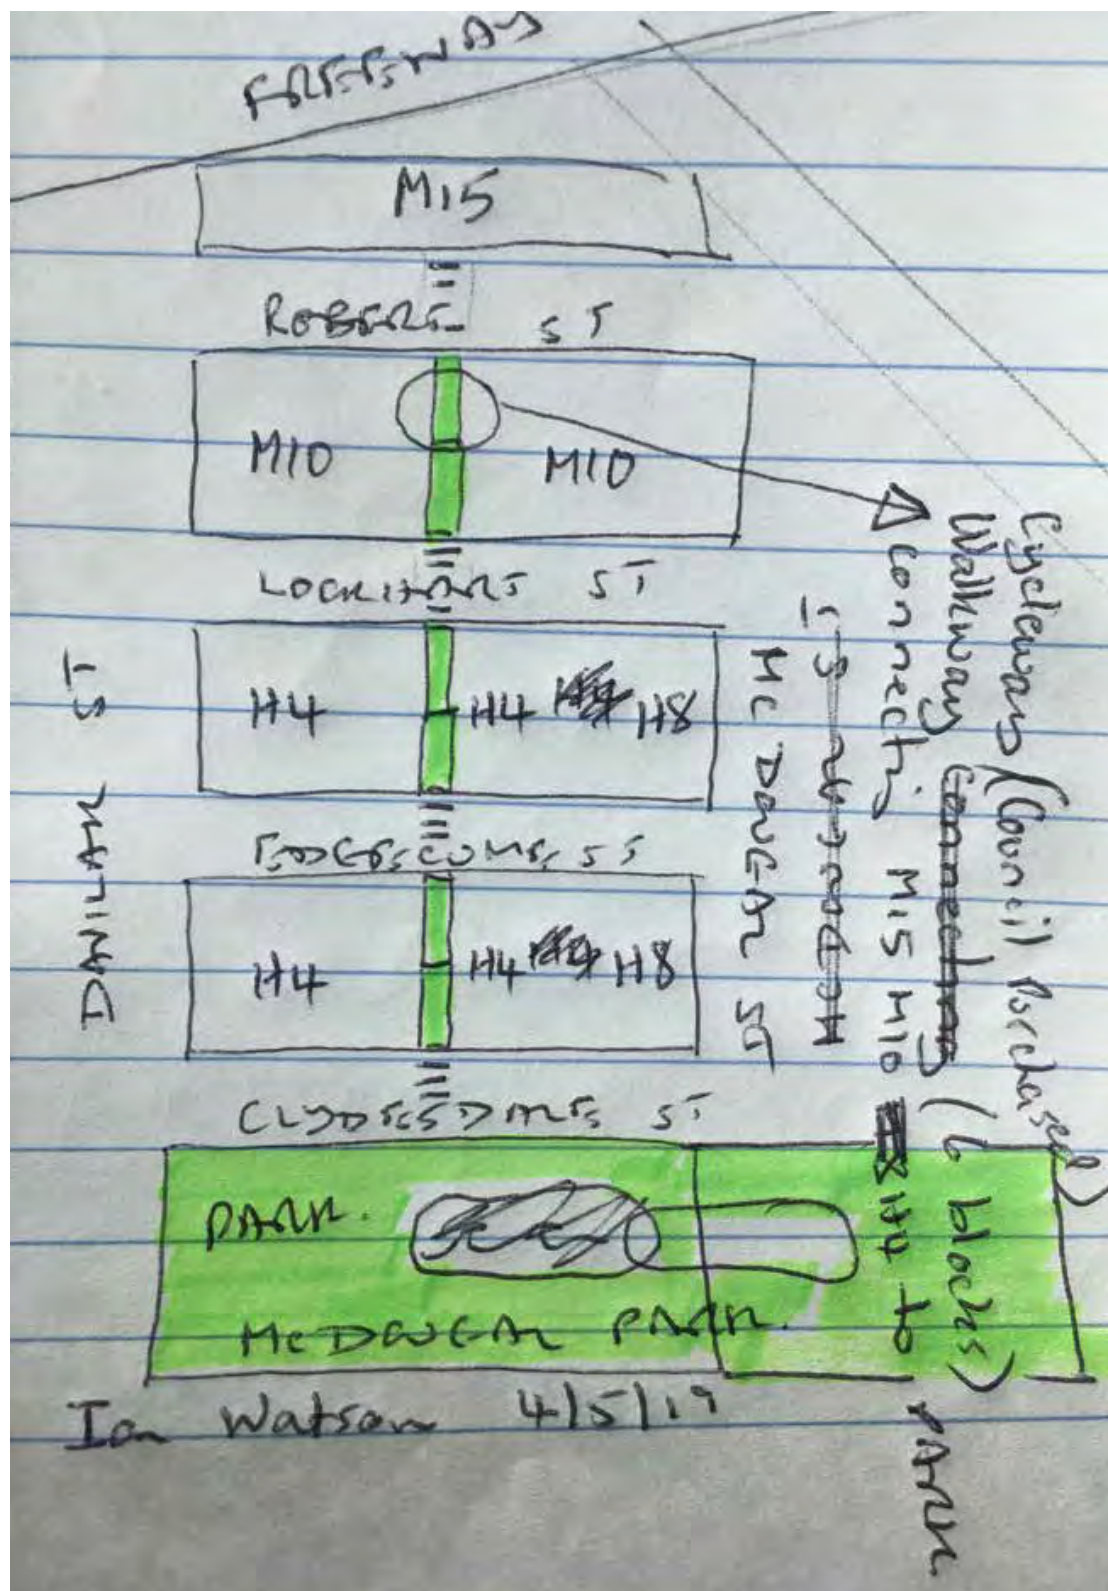 FREEWAY
M15
ROBERT ST
M10 M10
LOCKHART ST
H4 H4 H8
EDGECOMBE ST
H4 H4 H8
CLYDESDALE ST
PARK.
McDOUGAL PARK.
Ian Watson 4/5/19
DAVILAK ST
McDOUGAL ST
Cycleway (Council Purchased)
Walkway Connecting (6 blocks)
Connecting M15 M10 H4 to PARK